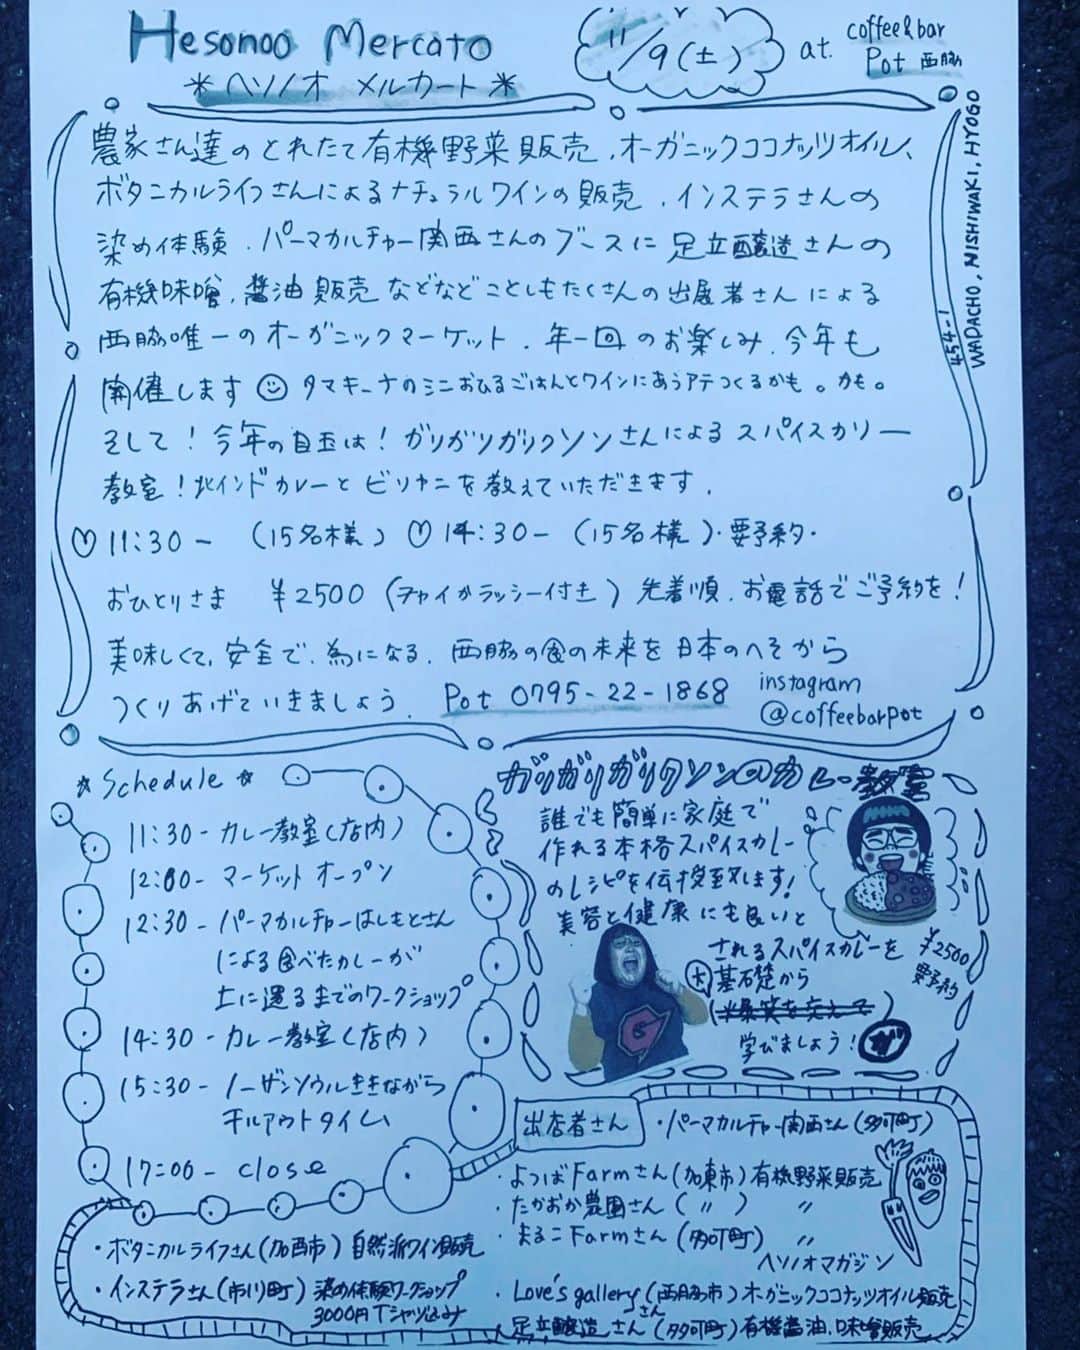 Hesonoo Mercato
＊ヘソノオ メルカート＊
11/9(土)
at. coffee&bar
Pot 西脇
454-1
WADACHO, NISHIWAKI, HYOGO
農家さん達のとれたて有機野菜販売、オーガニックココナッツオイル、
ボタニカルライフさんによるナチュラルワインの販売、インステラさんの
染め体験、パーマカルチャー関西さんのブースに足立醸造さんの
有機味噌、醤油販売などなどことしもたくさんの出展者さんによる
西脇唯一のオーガニックマーケット、年一回のお楽しみ、今年も
開催します☺タマキーナのミニおひるごはんとワインにあうアテつくるかも。かも。
そして！今年の目玉は！ガリガリガリクソンさんによるスパイスカリー
教室！北インドカレーとビリヤニを教えていただきます、
♡11:30－（15名様）♡14:30－（15名様）・要予約・
おひとりさま ¥2500（チャイかラッシー付き）先着順、お電話でご予約を！
美味しくて、安全で、為になる、西脇の食の未来を日本のへそから
つくりあげていきましょう、 Pot 0795-22-1868
instagram
@coffeebarpot
☆Schedule☆
11:30－カレー教室（店内）
12:00－マーケットオープン
12:30－パーマカルチャーはしもとさん
による食べたカレーが
土に還るまでのワークショップ
14:30－カレー教室（店内）
15:30－ノーザンソウルききながら
チルアウトタイム
17:00－close
ガリガリガリクソンのカレー教室
誰でも簡単に家庭で
作れる本格スパイスカレー
のレシピを伝授致します！
美容と健康にも良いと
されるスパイスカレーを
基礎から
（※爆笑を交えて）
学びましょう！
ガ
¥2500
要予約
G
出店者さん
・パーマカルチャー関西さん（多可町）
・よつばFarmさん（加東市）有機野菜販売
・たかおか農園さん（〃）〃
・まるこFarmさん（多可町）〃
ヘソノオマガジン
・Love's galleryさん（西脇市）オーガニックココナッツオイル販売
・足立醸造さん（多可町）有機醤油、味噌販売
・ボタニカルライフさん（加西市）自然派ワイン販売
・インステラさん（市川町）染め体験ワークショップ
3000円Tシャツ込み